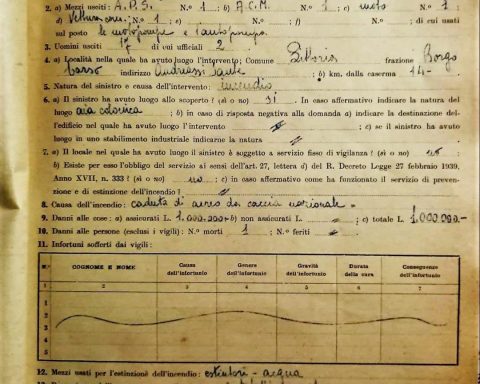 2. a) Mezzi usciti: A.P.S. N.º 1 ; b) A.C.M. N.º 1 ; c) moto N.º 1 ;
d) N.º 1 ; e) N.º ; f) N.º ; di cui usati
sul posto le motopompe e l'autopompa
3. Uomini usciti 17 di cui ufficiali 2
4. a) Località nella quale ha avuto luogo l'intervento: Comune Pistoia frazione Borgo
basso indirizzo ; b) km. dalla caserma 14-
5. Natura del sinistro e causa dell'intervento: incendio
6. a) Il sinistro ha avuto luogo allo scoperto? (si o no) si. In caso affermativo indicare la natura del
luogo aia colonica ; b) in caso di risposta negativa alla domanda a) indicare la destinazione del-
l'edificio nel quale ha avuto luogo l'intervento ; c) se il sinistro ha avuto
luogo in uno stabilimento industriale indicarne la natura
7. a) Il locale nel quale ha avuto luogo il sinistro è soggetto a servizio fisso di vigilanza? (si o no) no ;
b) Esiste per esso l'obbligo del servizio ai sensi dell'art. 27, lettera d) del R. Decreto Legge 27 febbraio 1939,
Anno XVII, n. 333? (si o no) no ; c) in caso affermativo come ha funzionato il servizio di preven-
zione e di estinzione dell'incendio?
8. Causa dell'incendio: caduta di aereo da caccia nazionale =
9. Danni alle cose: a) assicurati L. 1.000.000= b) non assicurati L. ; c) totale L. 1.000.000.-
10. Danni alle persone (esclusi i vigili): N.º morti 1 N.º feriti
11. Infortuni sofferti dai vigili:
N.º COGNOME E NOME Causa dell'infortunio Genere dell'infortunio Gravità dell'infortunio Durata della cura Conseguenze dell'infortunio
1 2 3 4 5 6 7
1
2
3
4
5
12. Mezzi usati per l'estinzione dell'incendio: estintori - acqua